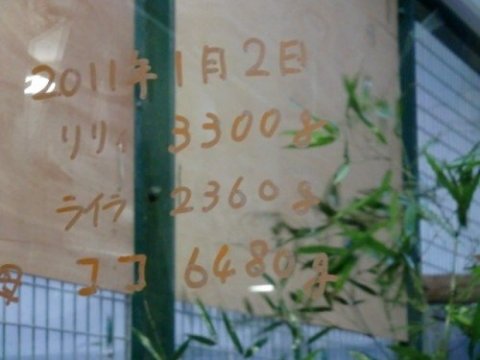 2011年1月2日
リリィ 3300g
ライラ 2360g
母 ココ 6480g